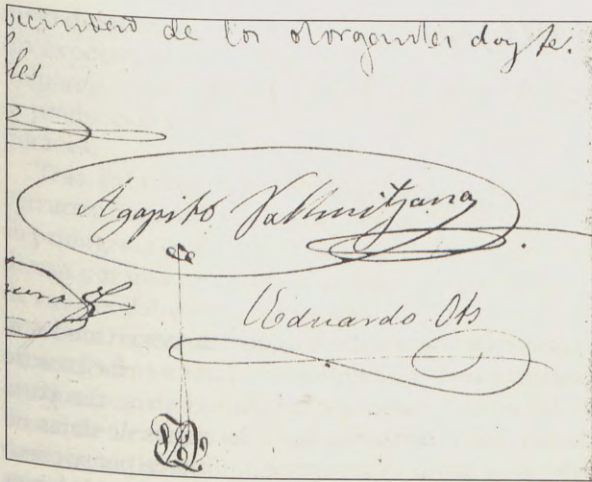 de los otorgantes doy fe.
les
Agapito Vallmitjana
Eduardo Ots